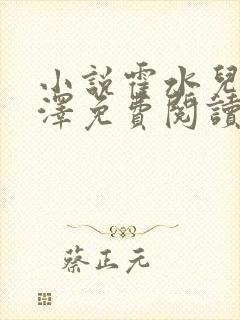 小說霍水兒
澤免費閱讀
蔡正元